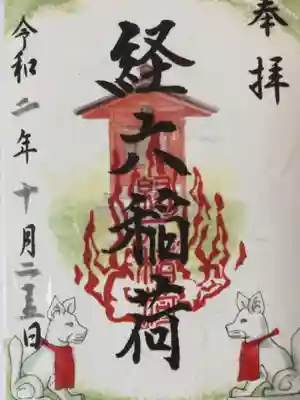 奉拝
経六稲荷
令和二年十月二三日